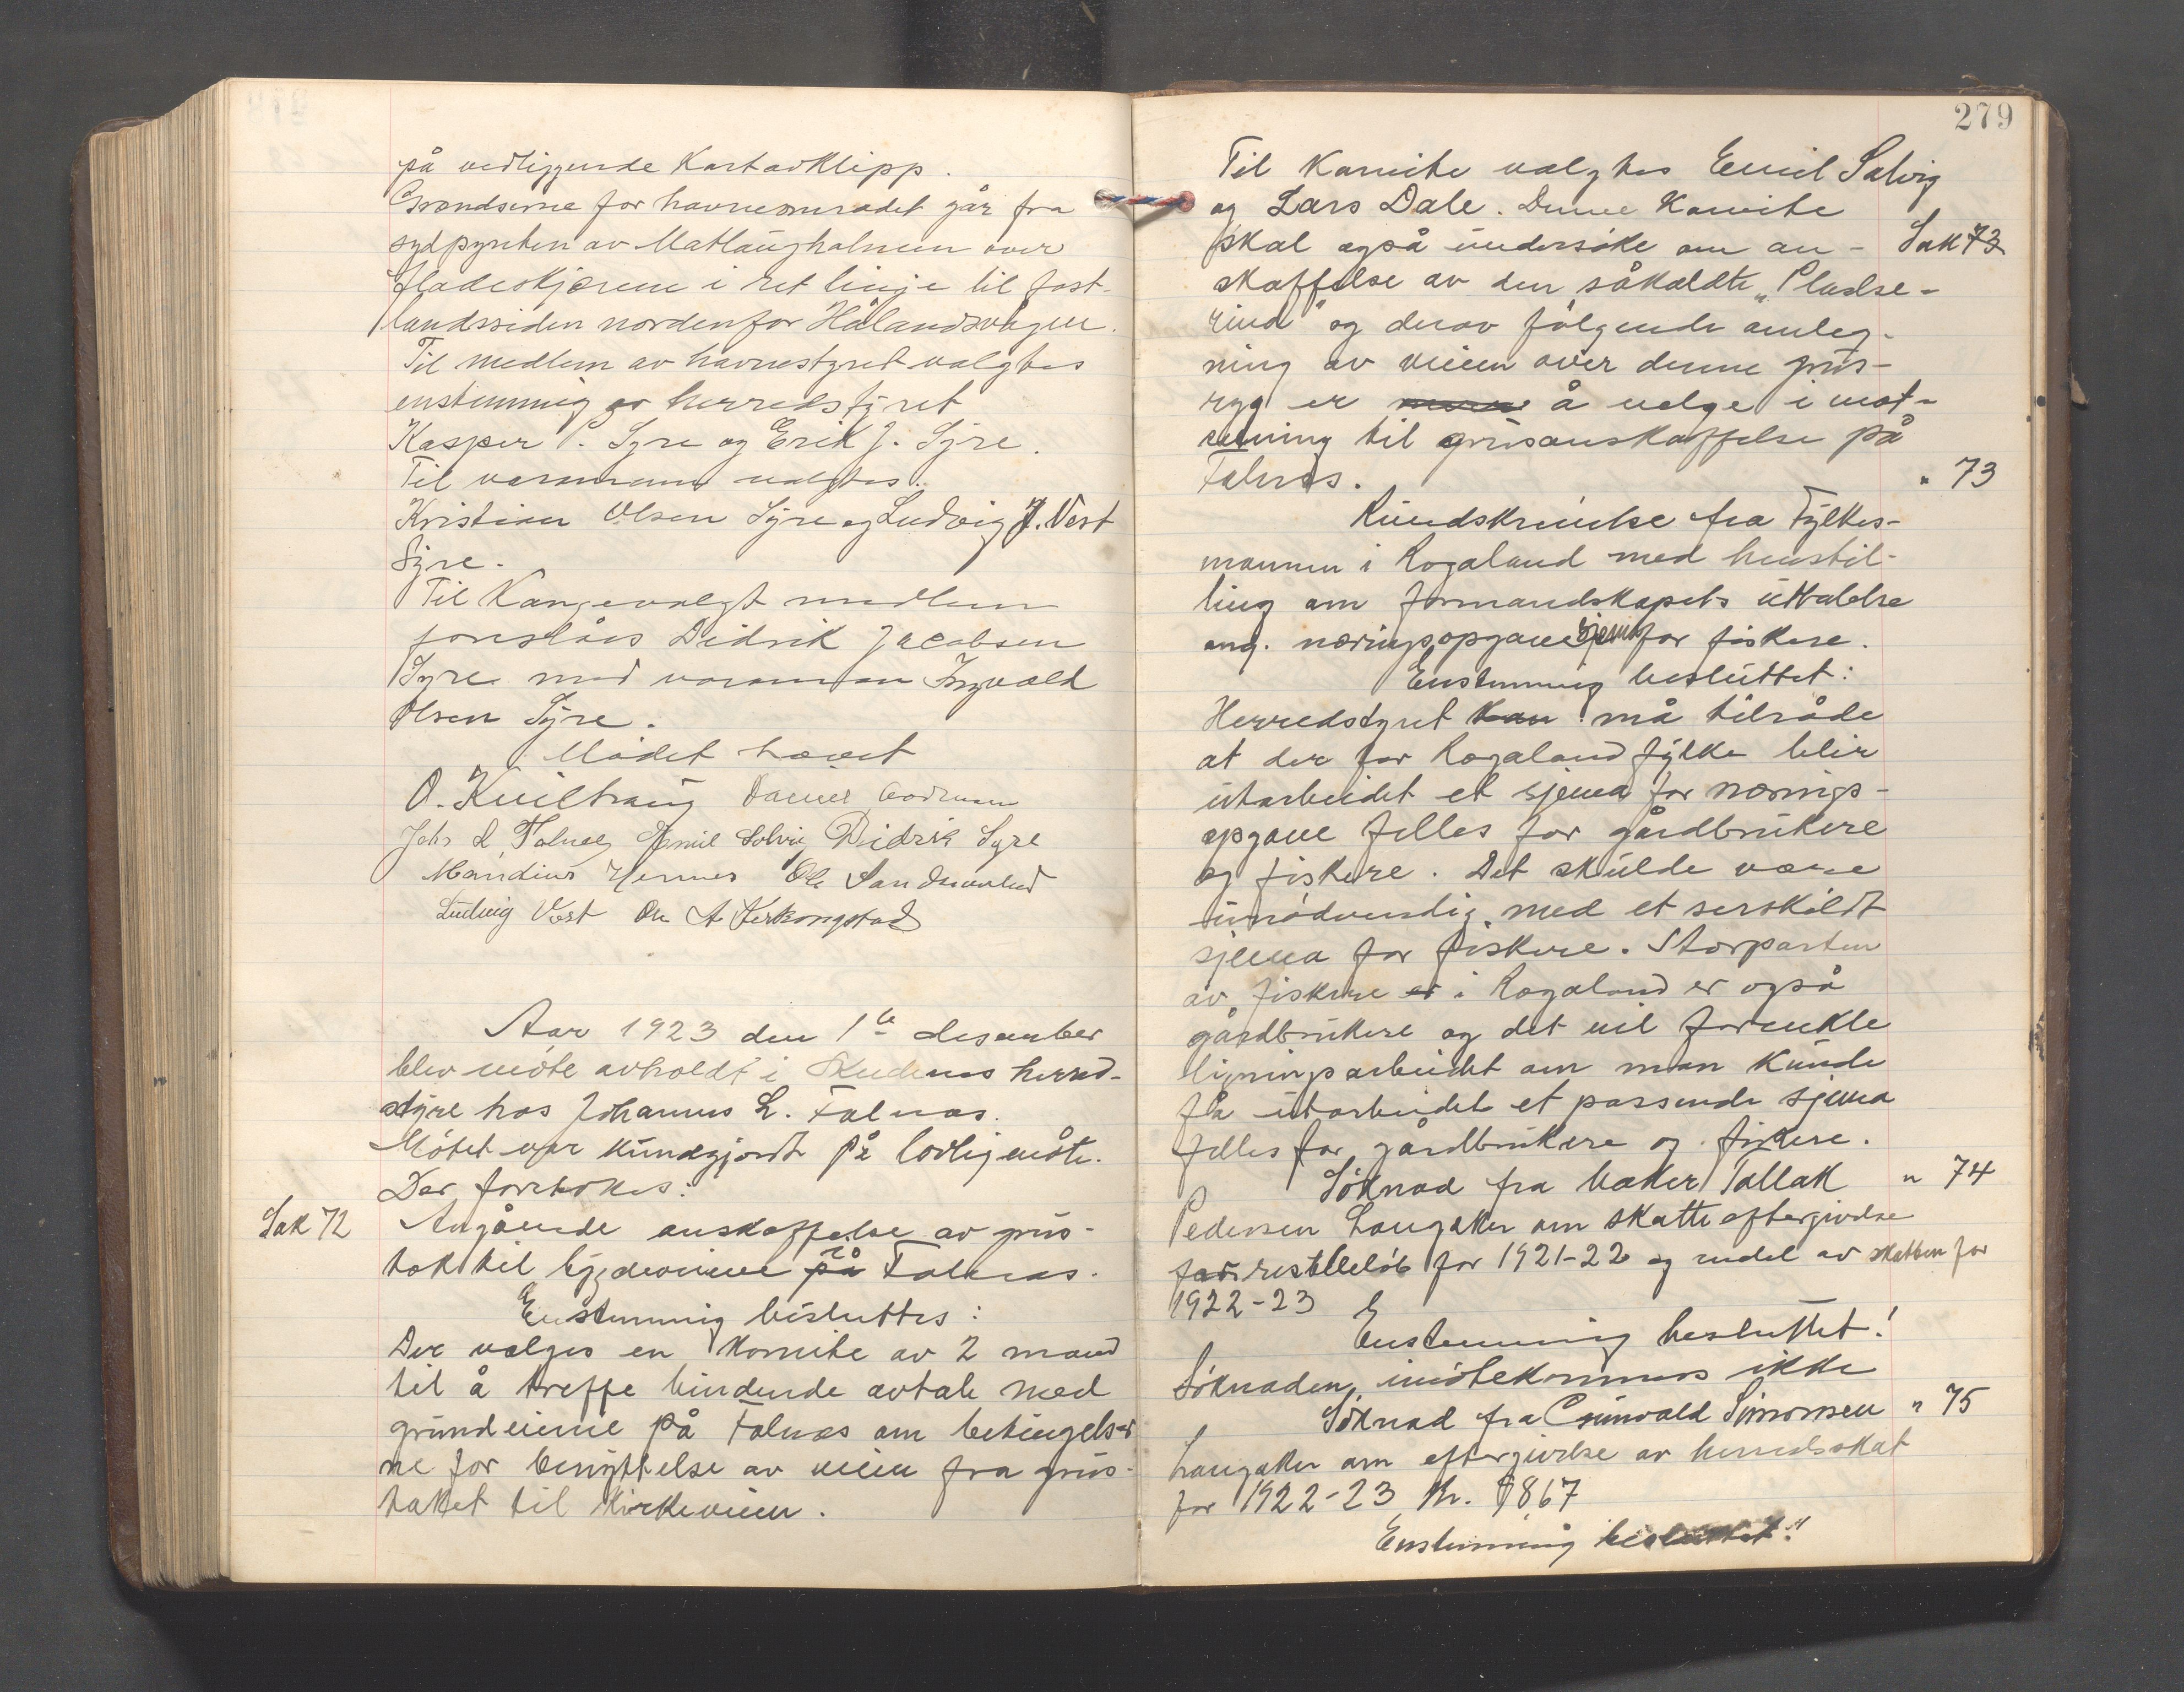 på vedliggende Kartavklipp.
Grændserne for havneområdet går fra
sydpynten av Matlaugholmen over
fladeskjærene i ret linje til fast-
landssiden nordenfor Hålandsvågen.
Til medlem av havnestyret valgtes
enstemmig av herredstyret
Kasper P. Syre og Erik J. Syre.
Til varamenn valgtes:
Kristian Olsen Syre og Ludvig J. Vest
Syre.
Til Kongevalgt medlem
foreslåes Didrik Jacobsen
Syre med varamann Ingvald
Olsen Syre.
Mødet hævet
O. Kvilhaug Daniel
Johs L Falnes Emil Solvig Didrik Syre
Mandius Hemnes Ole Sandsmolud
Ludvig Vest
Aar 1923 den 1te desember
blev møte avholdt i Skudenes herred-
styre hos Johannes L. Falnæs.
Møtet var kundgjordt på lovlig måte.
Der foretokes:
Sak 72 Angående anskaffelse av grus-
tak til bygdeveiene på Falnæs.
Enstemmig besluttes:
Der velges en Komite av 2 mand
til å treffe bindende avtale med
grundeierne på Falnæs om betingelser
ne for benyttelse av veien fra grus-
taket til Kirkeveien.
279
Til Komite valgtes Emil Solvig
og Lars Dale. Denne Komite
skal også undersøke om an- Sak 73
skaffelse av den såkaldte "Pladse-
rind" og derav følgende omleg-
ning av veien over denne grus-
ryg er å velge i mot-
setning til grusanskaffelse på
Falnæs.
" 73
Rundskrivelse fra Fylkes-
mannen i Rogaland med henstil-
ling om formandskapets uttalelse
ang. næringsopgave sjema for fiskere.
Enstemmig besluttet:
Herredstyret kan må tilråde
at der for Rogaland fylke blir
utarbeidet et sjema for nærings-
opgave felles for gårdbrukere
og fiskere. Det skulde være
unødvendig med et serskildt
sjema for fiskere. Storparten
av fiskere er i Rogaland er også
gårdbrukere og det vil forenkle
ligningsarbeidet om man kunde
få utarbeidet et passende sjema
felles for gårdbrukere og fiskere.
Søknad fra baker Tallak " 74
Pedersen Langaker om skatteeftergivelse
for restbeløb for 1921-22 og endel av skatten for
1922-23
Enstemmig besluttet:
Søknaden imøtekommes ikke
Søknad fra Gunvald Simonsen " 75
Langaker om eftergivelse av herredsskat
for 1922-23 Kr. 1867
Enstemmig besluttet: